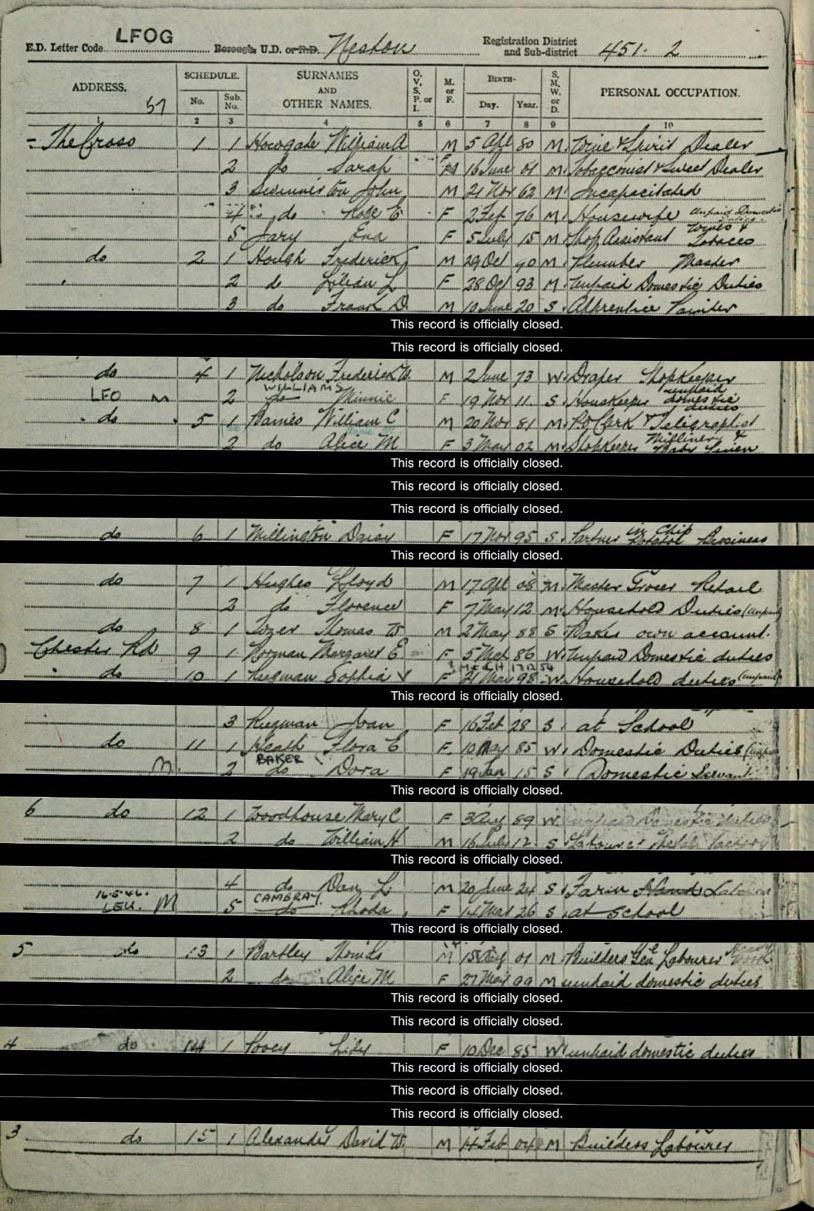 E.D. Letter Code LFOG Borough, U.D. or R.D. Neston Registration District and Sub-district 451. 2
ADDRESS. SCHEDULE. SURNAMES AND OTHER NAMES. O, V, S, P. or I. M. or F. BIRTH- S, M, W, or D. PERSONAL OCCUPATION.
57 No. Sub. No. Day. Year.
2 3 4 5 6 7 8 9 10
The Cross 1 1 Howgate William A M 5 Apl 80 M. Wine & Spirit Dealer
2 do Sarah F 16 June 01 M. Tobacconist & Sweet Dealer
3 John M 21 Nov 62 M Incapacitated
4 do E F 2 Feb 76 M. Housewife Unpaid Domestic
5 Jary Eva F 5 July 15 M. Shop Assistant Wines & Tobacco
do 2 1 Hough Frederick M 29 Oct 90 M. Plumber Master
2 do Lilian L F 28 Oct 93 M. Unpaid Domestic Duties
3 do Frank D M 10 June 20 S. Apprentice Painter
This record is officially closed.
This record is officially closed.
do 4 1 Nicholson Frederick W M 2 June 73 W. Draper Shopkeeper
WILLIAMS
LEO M 2 do Minnie F 19 Nov 11 S. Housekeeper unpaid domestic duties
do 5 1 Barnes William C M 20 Nov 81 M. P.O. Clerk & Telegraphist
2 do Alice M F 3 Mar 02 M. Shopkeeper Millinery & Baby Linen
This record is officially closed.
This record is officially closed.
This record is officially closed.
do 6 1 Millington Daisy F 17 Nov 95 S. Partner in Chip Potato Business
This record is officially closed.
do 7 1 Hughes Lloyd M 17 Apl 08 M. Master Grocer Retail
2 do Florence F 7 May 12 M. Household Duties (unpaid)
do 8 1 Tozer Thomas W M 2 May 88 S Baker own account.
Chester Rd 9 1 Norman Margaret E F 5 Mch 86 W. Unpaid Domestic duties
do 10 1 Sophia F 21 Mar 98 W. Household duties (unpaid)
This record is officially closed.
3 Joan F 16 Feb 28 S. at School
do 11 1 Heath Flora E F 10 May 85 W. Domestic Duties
BAKER
M. 2 do Dora F 19 Jan 15 S. Domestic Servant
This record is officially closed.
6 do 12 1 Woodhouse Mary C F 3 Aug 89 W. unpaid Domestic duties
2 do William H M 16 July 12 S. Labourer
This record is officially closed.
4 do Dan L M 20 June 24 S. Farm Hand Labourer
16.5.46. CAMBRAY
LEU. M 5 do Rhoda F 14 Mar 26 S at School
This record is officially closed.
5 do 13 1 Bartley Thomas M 01 M. Builders Labourer Heavy Work
2 do Alice M F 27 Mar 99 M unpaid domestic duties
This record is officially closed.
This record is officially closed.
4 do 14 1 Povey Lily F 10 Dec 85 W unpaid domestic duties
This record is officially closed.
This record is officially closed.
This record is officially closed.
3 do 15 1 Alexander David W. M 14 Feb 04 M Builders Labourer